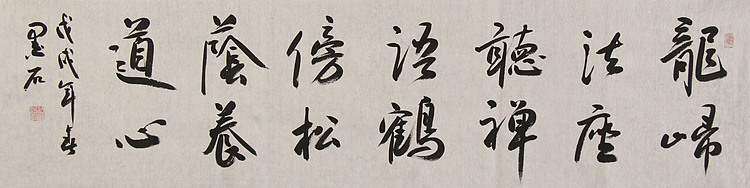 龍歸
法座
聽禅
語鶴
傍松
蔭養
道心
戊戌年春
墨石